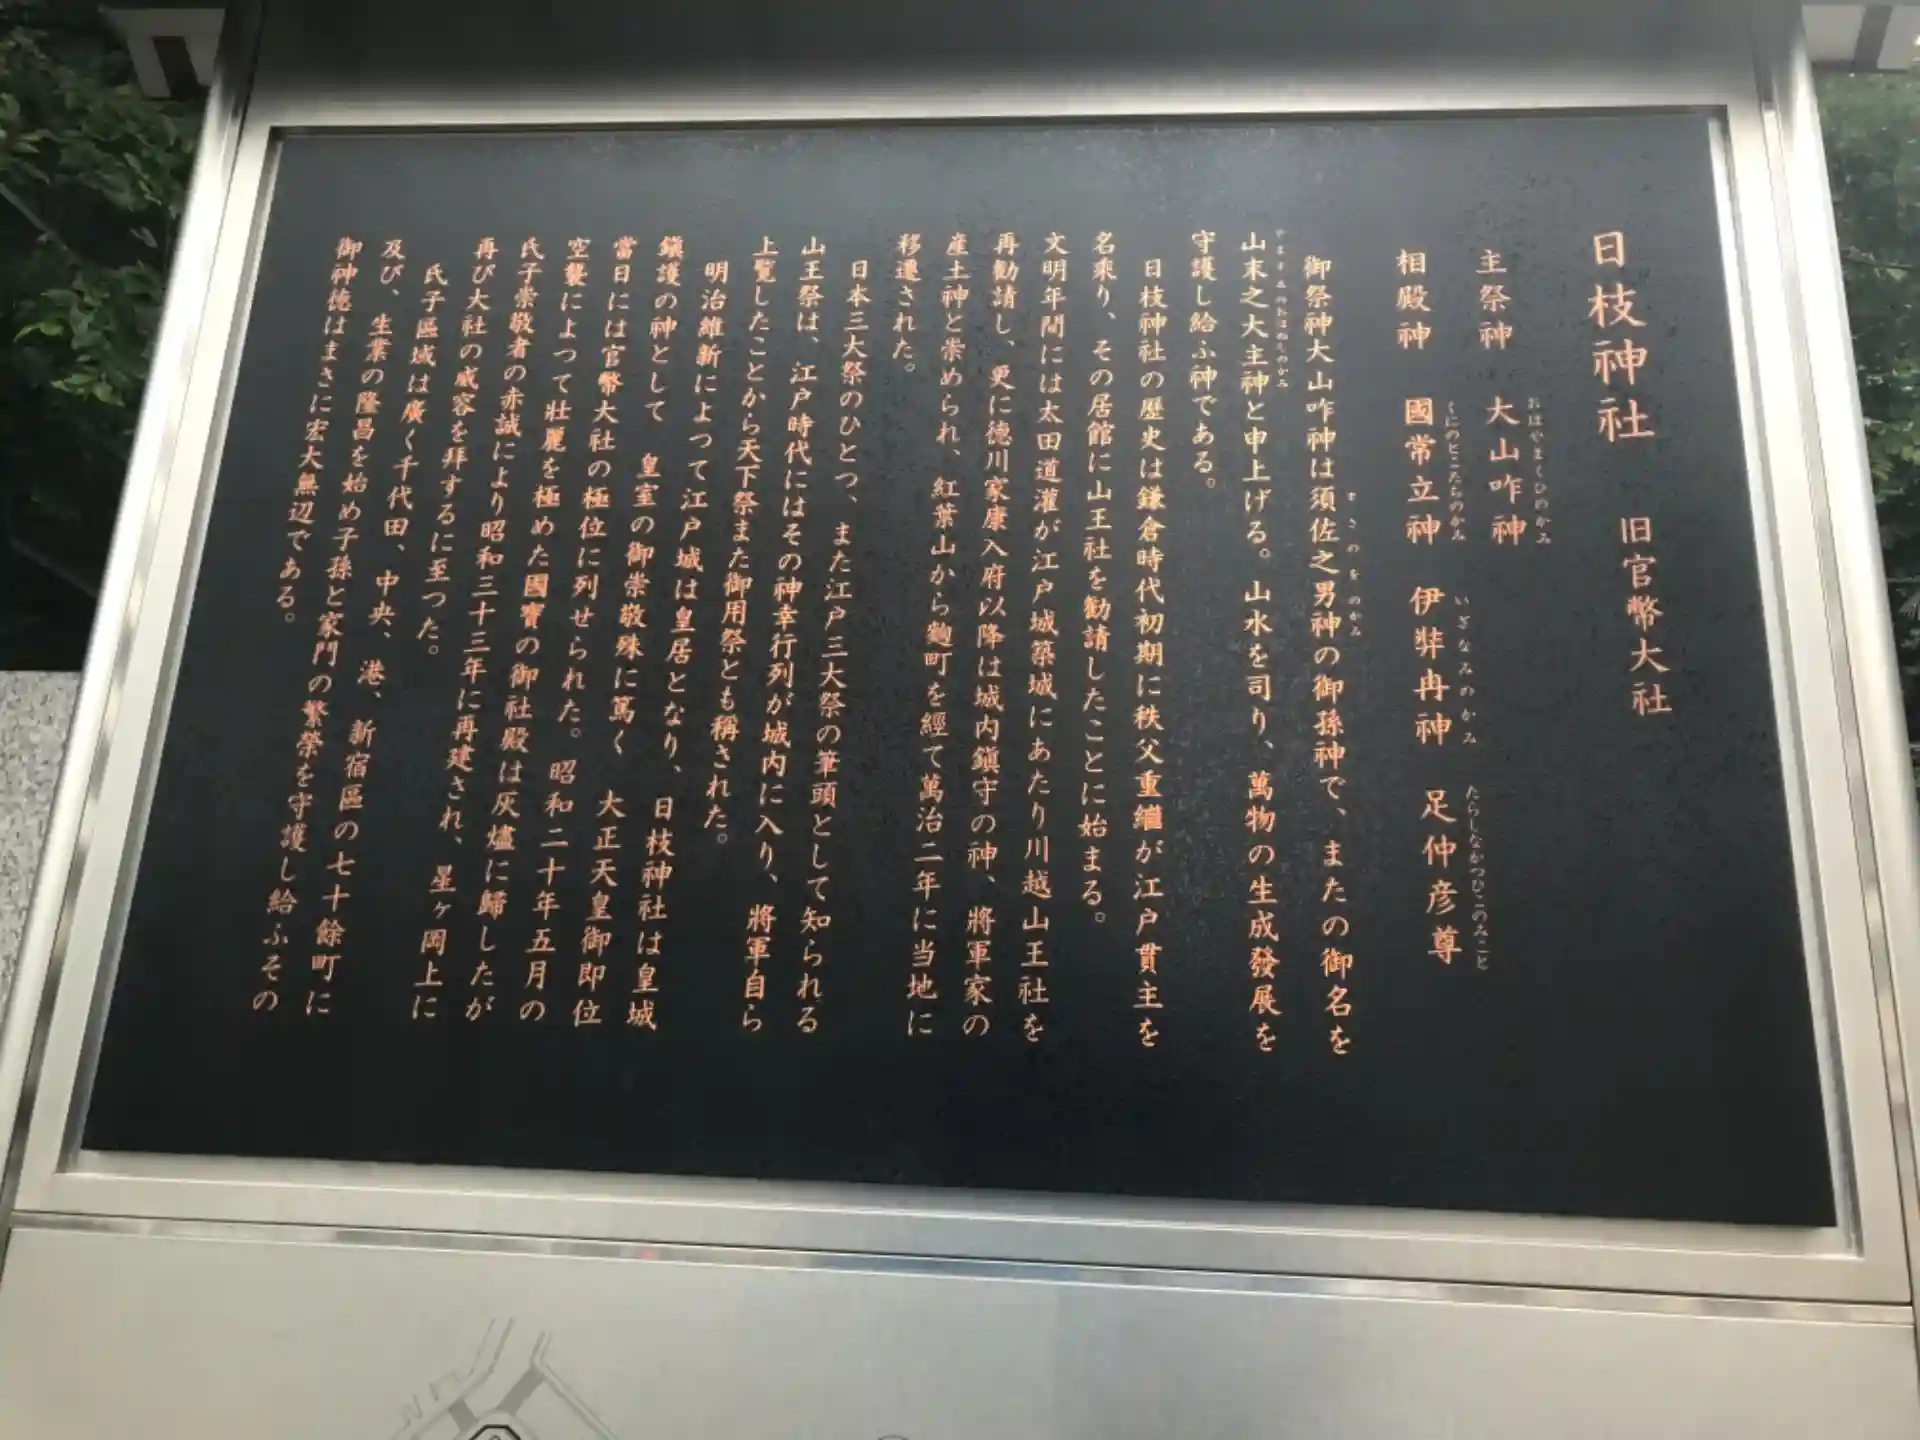 日枝神社　旧官幣大社
主祭神　大山咋神
おほやまくひのかみ
相殿神　國常立神　伊弉冉神　足仲彦尊
くにのとこたちのかみ　いざなみのかみ　たらしなかつひこのみこと
御祭神大山咋神は須佐之男神の御孫神で、またの御名を
すさのをのかみ
山末之大主神と申上げる。山水を司り、萬物の生成發展を
やますゑのおほぬしのかみ
守護し給ふ神である。
日枝神社の歴史は鎌倉時代初期に秩父重繼が江戸貫主を
名乘り、その居館に山王社を勧請したことに始まる。
文明年間には太田道灌が江戸城築城にあたり川越山王社を
再勧請し、更に徳川家康入府以降は城内鎭守の神、將軍家の
産土神と崇められ、紅葉山から麹町を經て萬治二年に当地に
移遷された。
日本三大祭のひとつ、また江戸三大祭の筆頭として知られる
山王祭は、江戸時代にはその神幸行列が城内に入り、將軍自ら
上覧したことから天下祭また御用祭とも稱された。
明治維新によつて江戸城は皇居となり、日枝神社は皇城
鎭護の神として　皇室の御崇敬殊に篤く　大正天皇御即位
當日には官幣大社の極位に列せられた。昭和二十年五月の
空襲によつて壯麗を極めた國寳の御社殿は灰燼に歸したが
氏子崇敬者の赤誠により昭和三十三年に再建され、星ヶ岡上に
再び大社の威容を拜するに至つた。
氏子區域は廣く千代田、中央、港、新宿區の七十餘町に
及び、生業の隆昌を始め子孫と家門の繁榮を守護し給ふその
御神徳はまさに宏大無辺である。